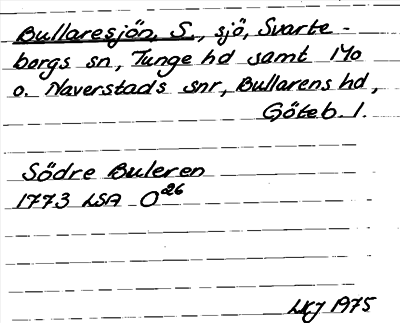 Bullaresjön, S., sjö, Svarte-
borgs sn, Tunge hd samt Mo
o. Naverstads snr, Bullarens hd,
Göteb. l.
Södre Buleren
1773 LSA O26
LKJ 1975